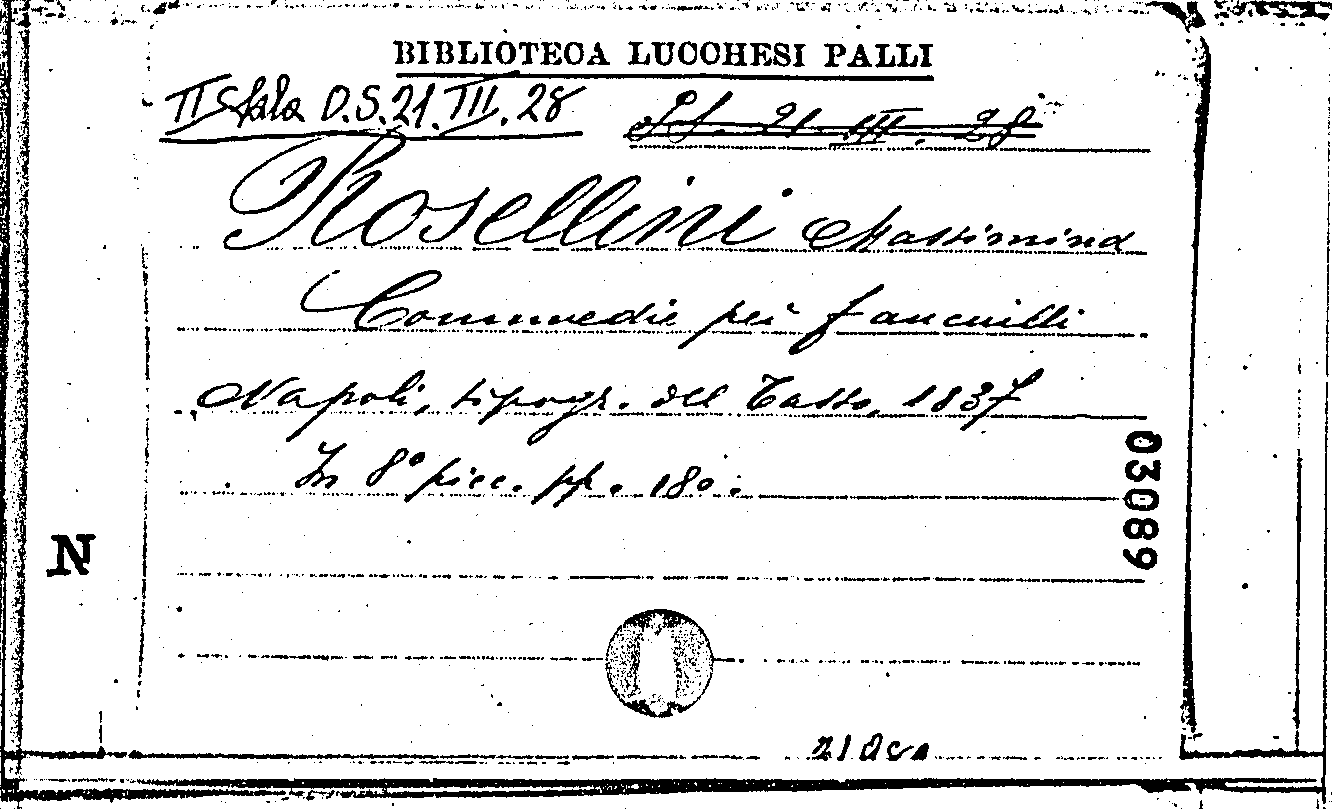 BIBLIOTECA LUCCHESI PALLI
II Sala D.S.21.III.28
21. III. 28
Rosellini Massimina
Commedie pei fanciulli
Napoli, tipogr. del Tasso, 1837
In 8° picc. pp. 180.
03089
N